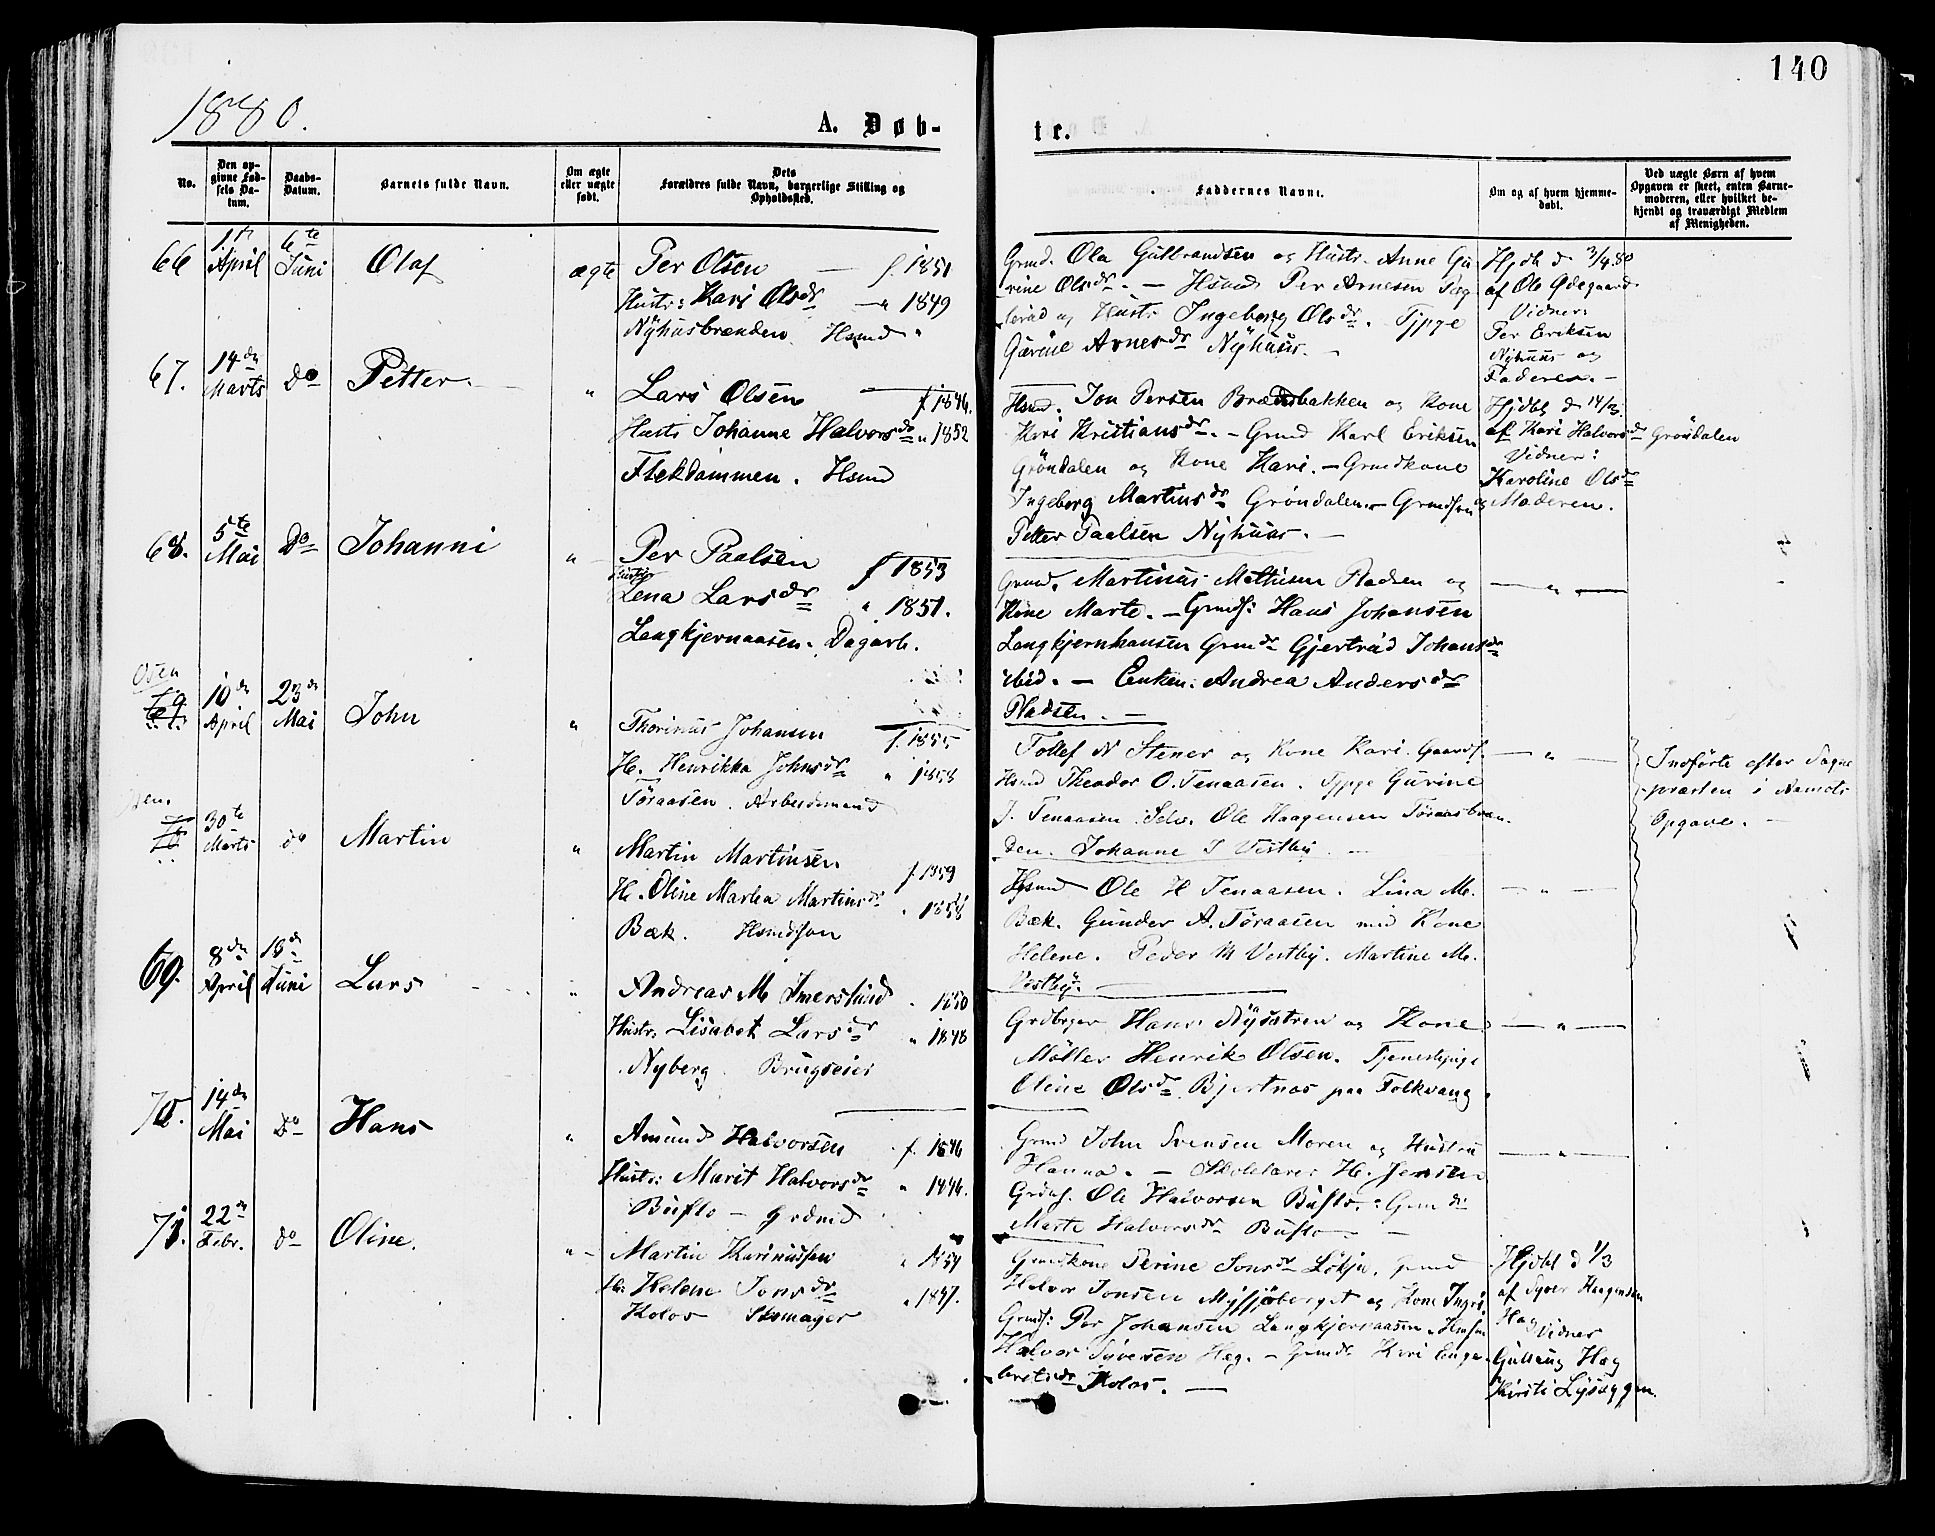 140
1880.
A. Døb-
te.
No.
Den op-
givne Fød-
sels Da-
tum.
Daabs-
Datum.
Barnets fulde Navn.
Om ægte
eller uægte
født.
Dets
Forældres fulde Navn, borgerlige Stilling og
Opholdssted.
Faddernes Navne.
Om og af hvem hjemme-
døbt.
Ved uægte Børn af hvem
Opgaven er skeet, enten Barne-
moderen, eller hvilket be-
kjendt og troværdigt Medlem
af Menigheden.
66
April
6te
Juni
Olaf
ægte
Per Olsen f. 1851
Hustr: Kari Olsdr " 1849
Nyhusbrænden. Hsmd
Grmd. Ola Gulbrandsen og Hustr. Anne Gu-
rine Olsdr. — Hsmd Per Arnesen
og Hustr Ingeborg Olsdr. Tjpge
Gurine Arnesdr Nyhuus. —
Hjdbt d 3/4 80
af Ole Ødegaard
Vidner:
Per Eriksen
Nyhuus og
Faderen. —
67.
14de
Marts
Do
Petter.
"
Lars Olsen f 1846.
Hustr Johanne Halvorsdr " 1852
Flekdammen. Hsmd
Hsmd. Jon Persen Brændbakken og Kone
Kari Kristiansdr. — Grmd Karl Eriksen
Grøndalen og Kone Kari. — Grmdkone
Ingeborg Martinsdr Grøndalen. — Grmdsøn
Petter Paalsen Nyhuus. —
Hjdbt d 14/3
af Kari Halvorsdr Grøndalen
Vidner:
Karoline Olsdr
og Moderen.
68.
5te
Mai
Do
Johanni
"
Per Paalsen f 1853
Hustr
Lena Larsdr " 1851.
Langkjernaasen. Dagarb.
Grmd. Martinus Mathisen Pladsen og
Kone Marte. — Grmds: Hans Johansen
Langkjernhaugen Grmdr Gjertrud Johansdr
ibid. — Enken: Andrea Andersdr
Pladsen. —
— " —
Osen
10de
April
23de
Mai
John
"
Thorinus Johansen f. 1855
H. Henrikka Johnsdr " 1858
Tøraasen. Arbeidsmand
Tollef N Stener og Kone Kari. Gaardf.
Hsmd Theodor O. Tenaasen. Tjpge Gurine
J. Tenaasen. Selv. Ole Haagensen Tøraasbræn-
den. Johanne J Vestby. —
— " —
Indførte efter Sogne-
præsten i Aamots
Opgave. —
Osen
30te
Marts
do
Martin
"
Martin Martinsen f. 1859
H. Oline Marthea Martinsdr " 1858
Bæk. Hsmdsøn
Hsmd Ole H Tenaasen. Lina M.
Bæk. Gunder A. Tøraasen med Kone
Helene. Peder M Vestby. Martine M.
Vestby. —
— " —
69.
8de
April
18de
Juni
Lars
"
Andreas M. Imerslund " 1850
Hustr: Lisabet Larsdr " 1848
Nyberg. Brugseier
Grdbrger Hans Nysætren og Kone
Møller Henrik Olsen. Tjenestepige
Oline Olsdr Bjertnæs paa Folkvang.
— " —
70.
14de
Mai
Do
Hans
"
Amund Halvorsen f. 1846
Hustr: Marit Halvorsdr " 1846.
Buflo — Grdmd
Grmd John Svensen Moren og Hustru
Hanna. — Skolelærer H. Jensen
Grds. Ole Halvorsen Buflo. Grmdr
Marte Halvorsdr Buflo —
— " —
71.
22de
Febr.
do
Oline.
"
Martin Karinussen " 1854
H: Helene Jonsdr " 1847.
Kolos Skomager
Grmdkone Perine Jonsdr Løkja. Grmd
Halvor Jonsen Mysjøberget og Kone
Grmds: Per Johansen Langkjernaasen.
Halvor Syversen Hæg. — Grmdr Kari Enge-
bretsdr Kolos. —
Hjdbt d 1/3
af Syver Haagensen
Hæg Vidner
Gulloug Hæg
Kirsti Lysbyggen.